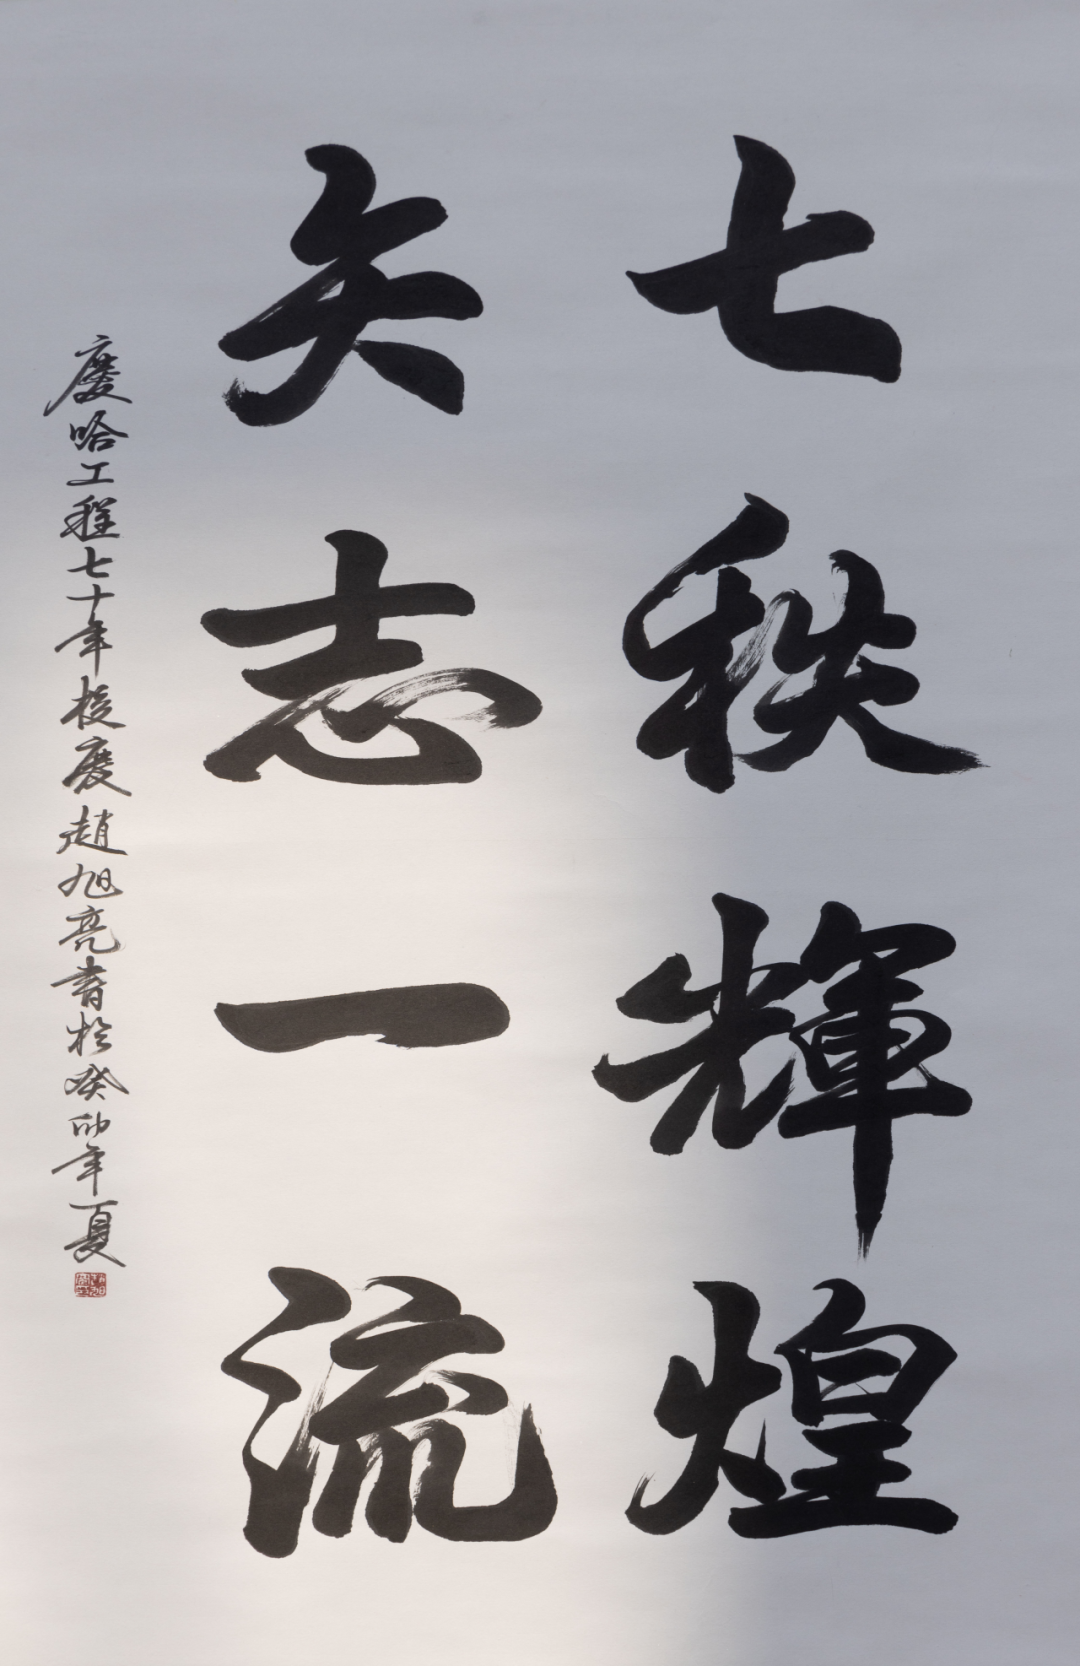 七秩輝煌
矢志一流
慶哈工程七十年校慶趙旭亮書於癸卯年夏